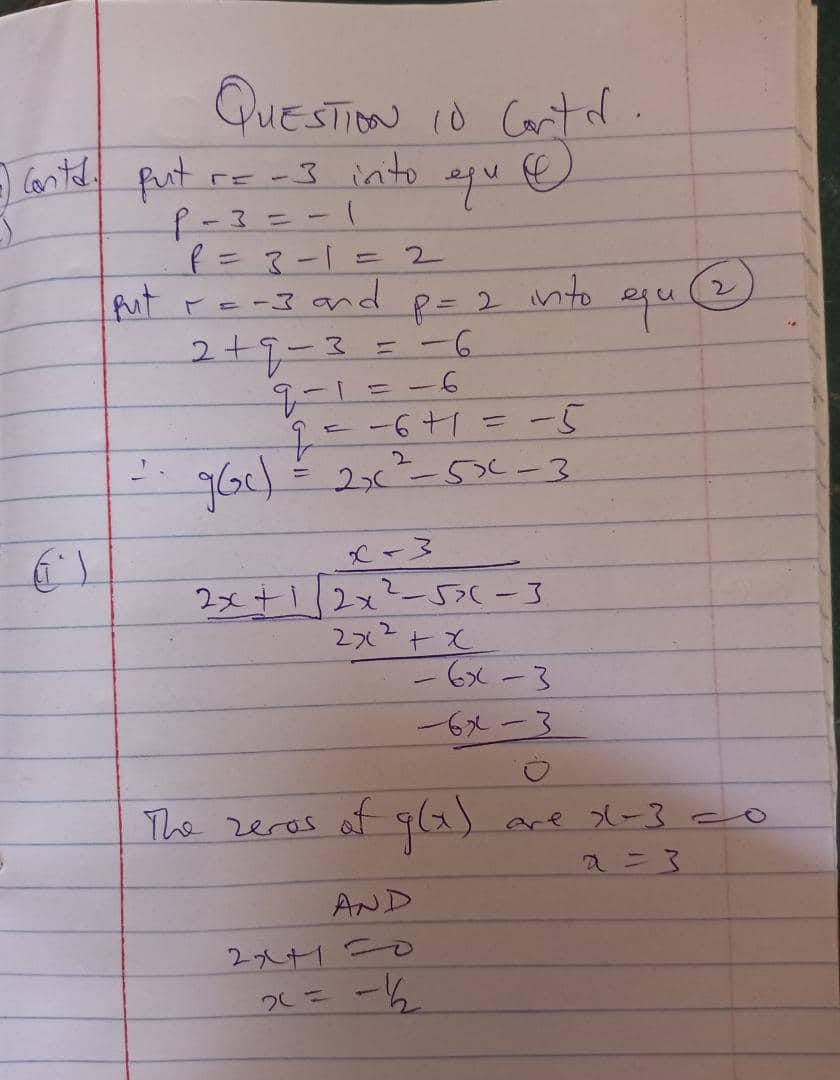 QUESTION 10 Contd.
Contd. put r= -3 into equ (4)
p - 3 = - 1
p = 3 - 1 = 2
put r = -3 and p = 2 into equ (2)
2 + q - 3 = -6
q - 1 = -6
q = -6 + 1 = -5
∴ g(x) = 2x² - 5x - 3
(ii)
x - 3
2x + 1 2x² - 5x - 3
2x² + x
- 6x - 3
- 6x - 3
0
The zeros of g(x) are x - 3 = 0
x = 3
AND
2x + 1 = 0
x = - 1/2